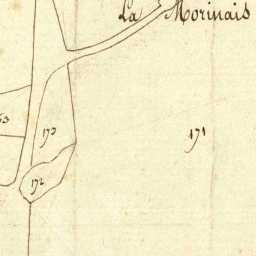 La Morinais
173
171
172